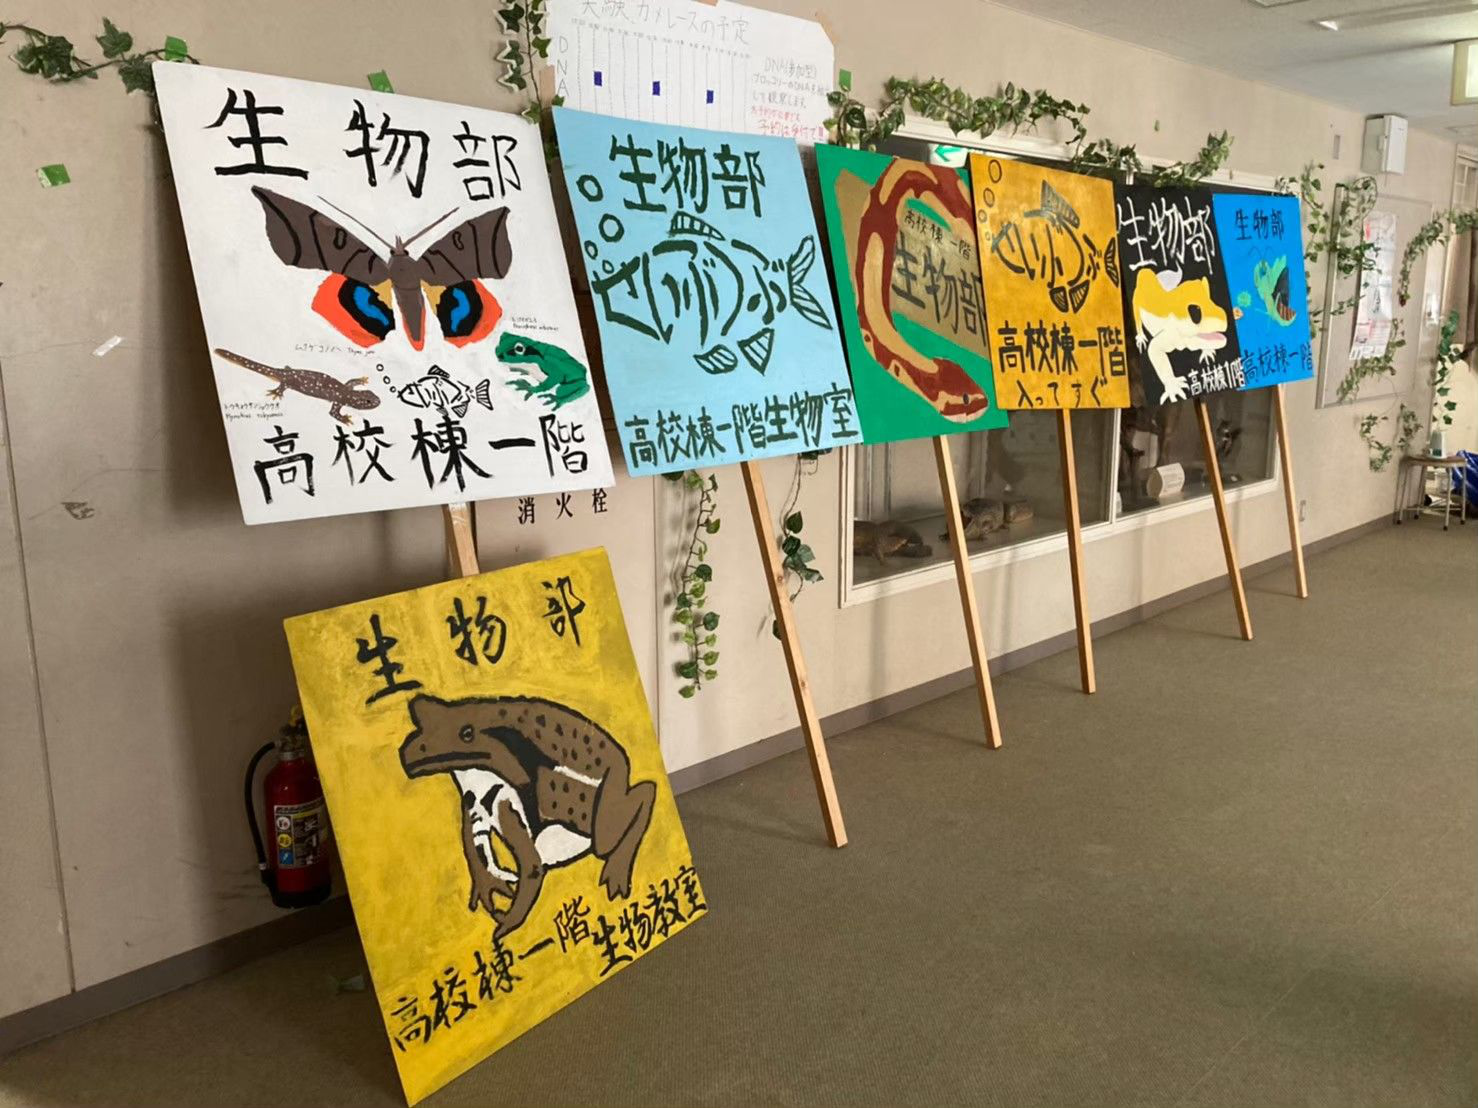 実験、カメレースの予定
DNA
DNA(参加型)
ブロッコリーのDNAを抽出
して観察します。
予約は受付で!!
生物部
ムクゲコノハ
トウキョウサンショウウオ
高校棟一階
消火栓
生物部
せいぶつぶ
高校棟一階生物室
高校棟一階
生物部
せいぶつぶ
高校棟一階
入ってすぐ
生物部
高校棟1階
生物部
高校棟一階
生物部
高校棟一階生物教室